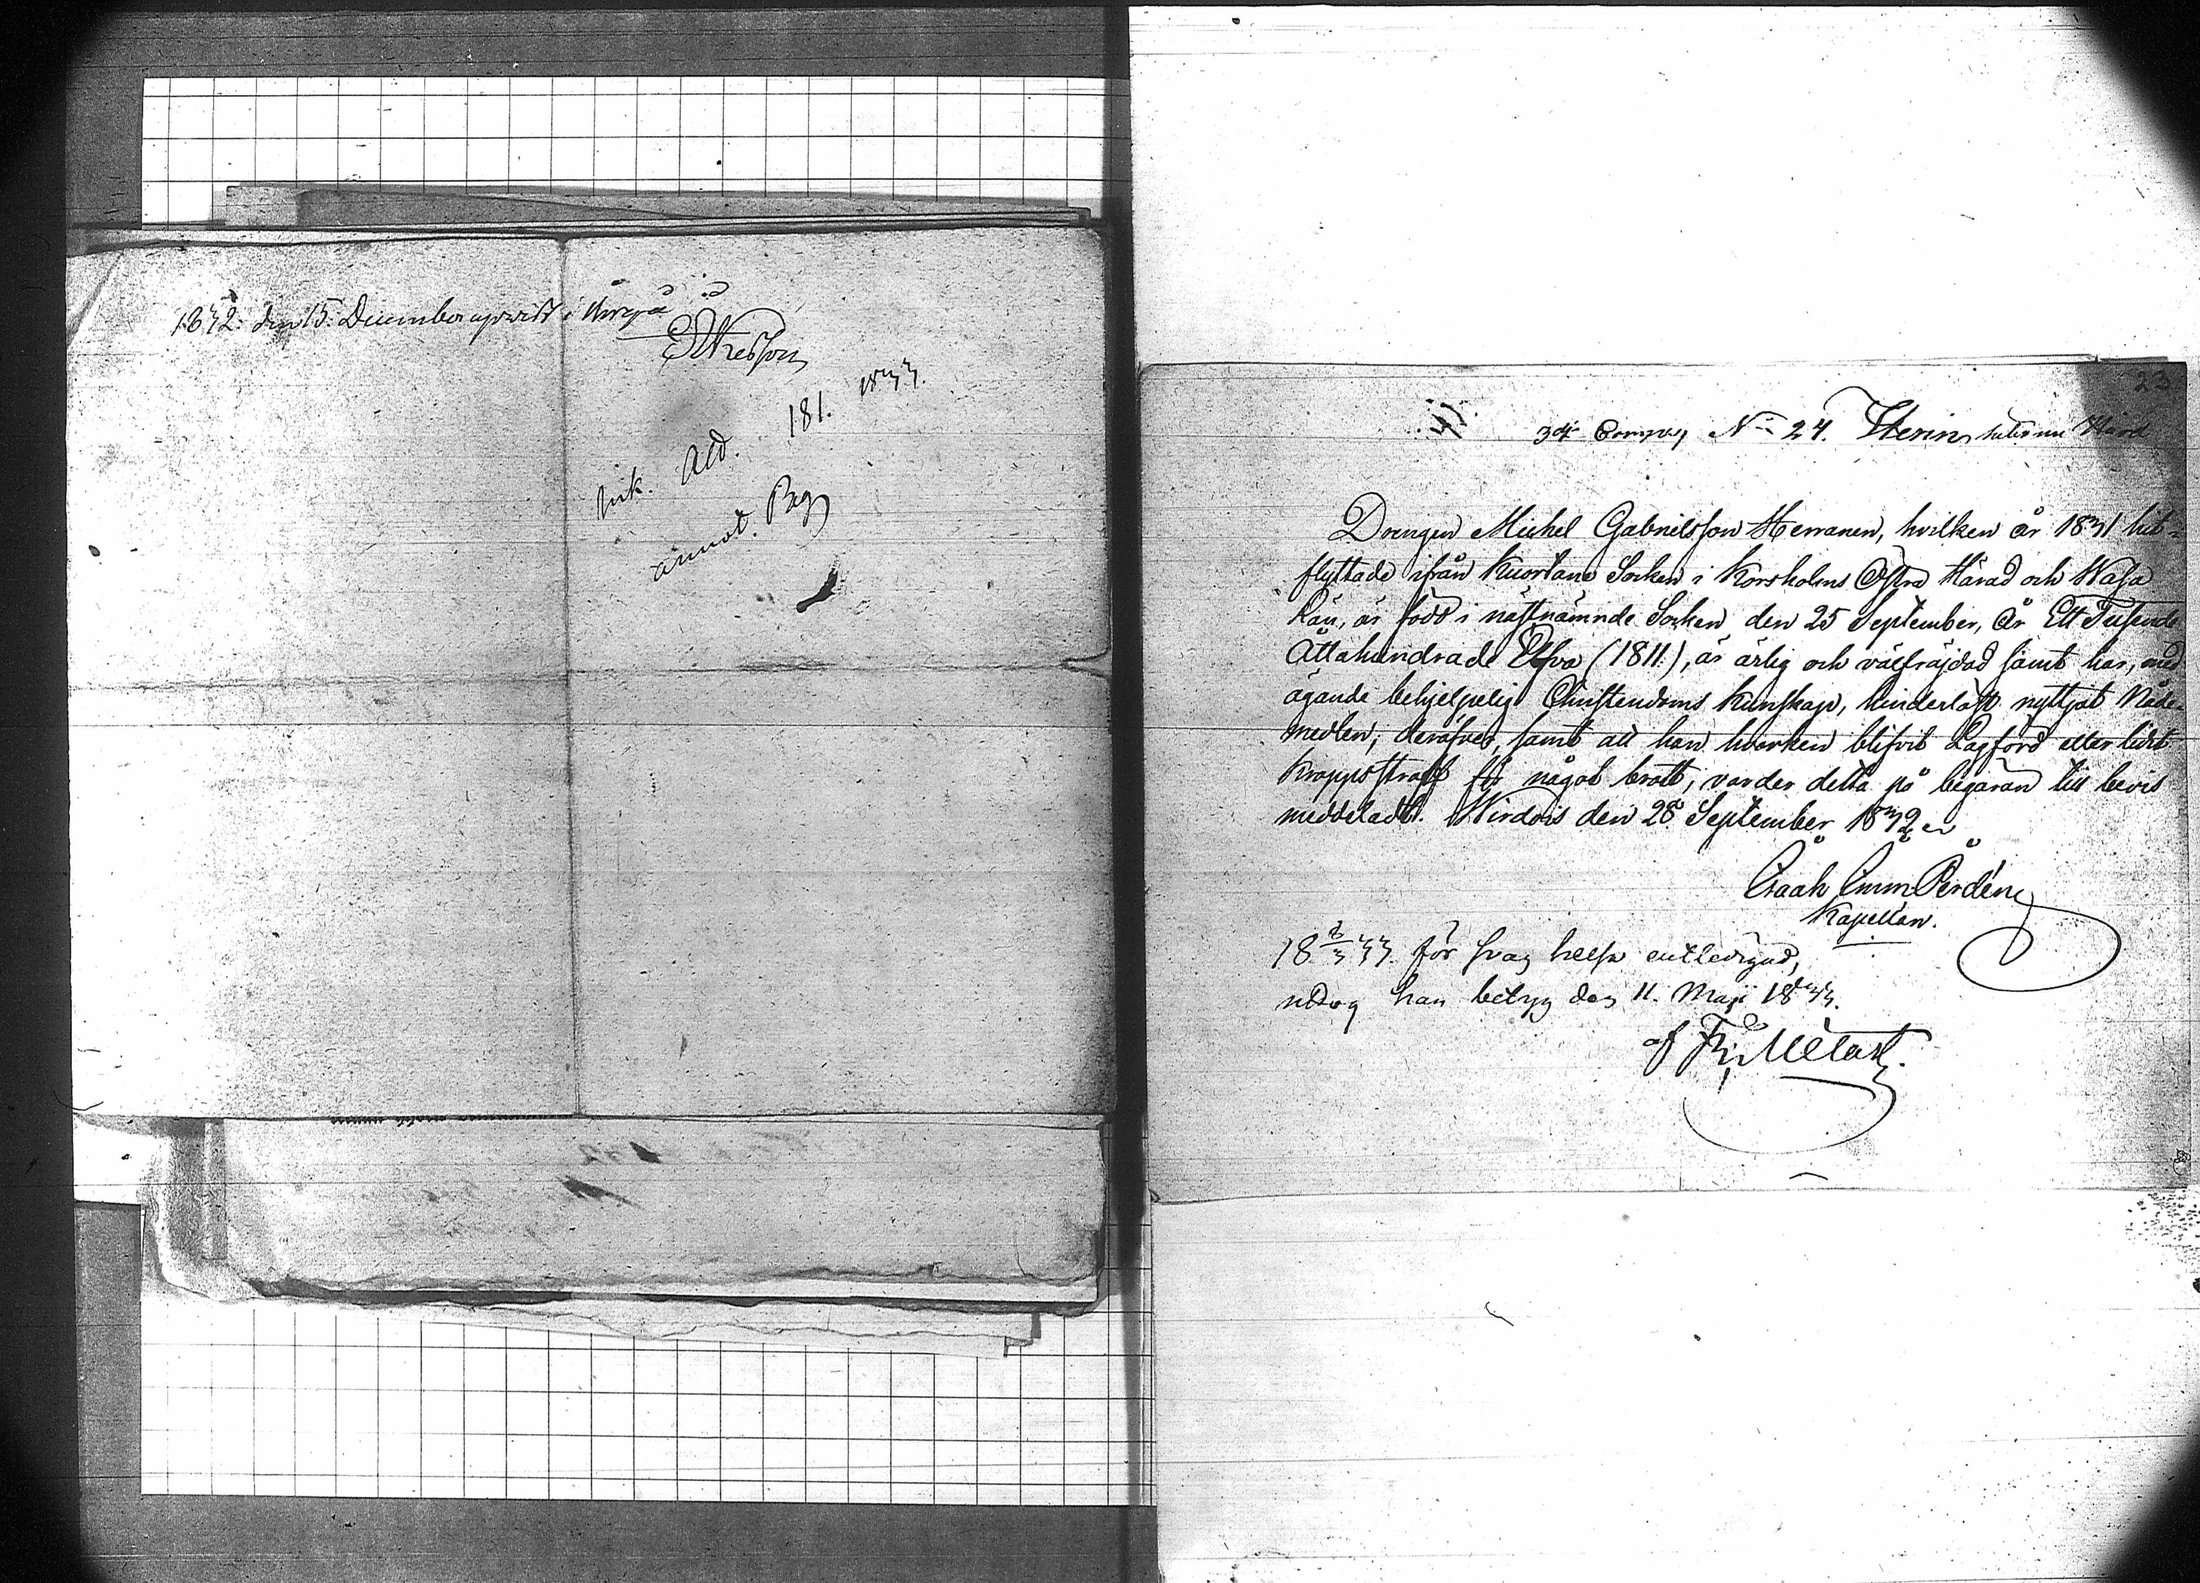 1832. den 15. December upvist i
E Wresson
ink. Ald. 181. 1833.
annot. Beg
23
3dje Comp. No 24. Herin heter nu Hård
Drengen Michel Gabrielsson Herranen, hvilken år 1831 hit-
flyttade ifrån Kuortane Socken i Korsholms Östra Härad och Wasa
Län, är född i nästnämnde Socken den 25 September, År Ett Tusende
Åttahundrade Elfva (1811), är ärlig och välfräjdad samt har, med
ägande behjelpelig Christendoms Kunskap, hinderlöst nyttjat Nåde-
medlen; deröfver, samt att han hvarken blifvit Lagförd eller lidit
Kroppsstraff för något brott, varder detta på begäran till bevis
meddeladt. Wirdois den 28 September 1832
Isaak Emm Perdén
Kapellan.
1833. för svag helsa entledigad,
undog han betyg den 11. Maji 1833.
af